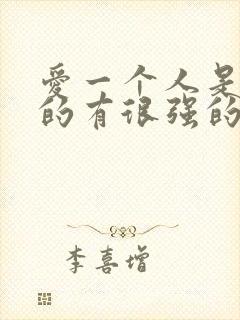 爱一个人是
的有很强的
李喜增